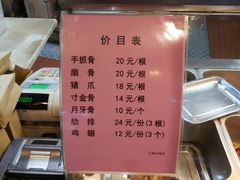 价目表
手抓骨 20元/根
扇骨 20元/根
猪爪 18元/根
寸金骨 14元/根
月牙骨 10元/个
肋排 24元/份(3根)
鸡翅 12元/份(3个)